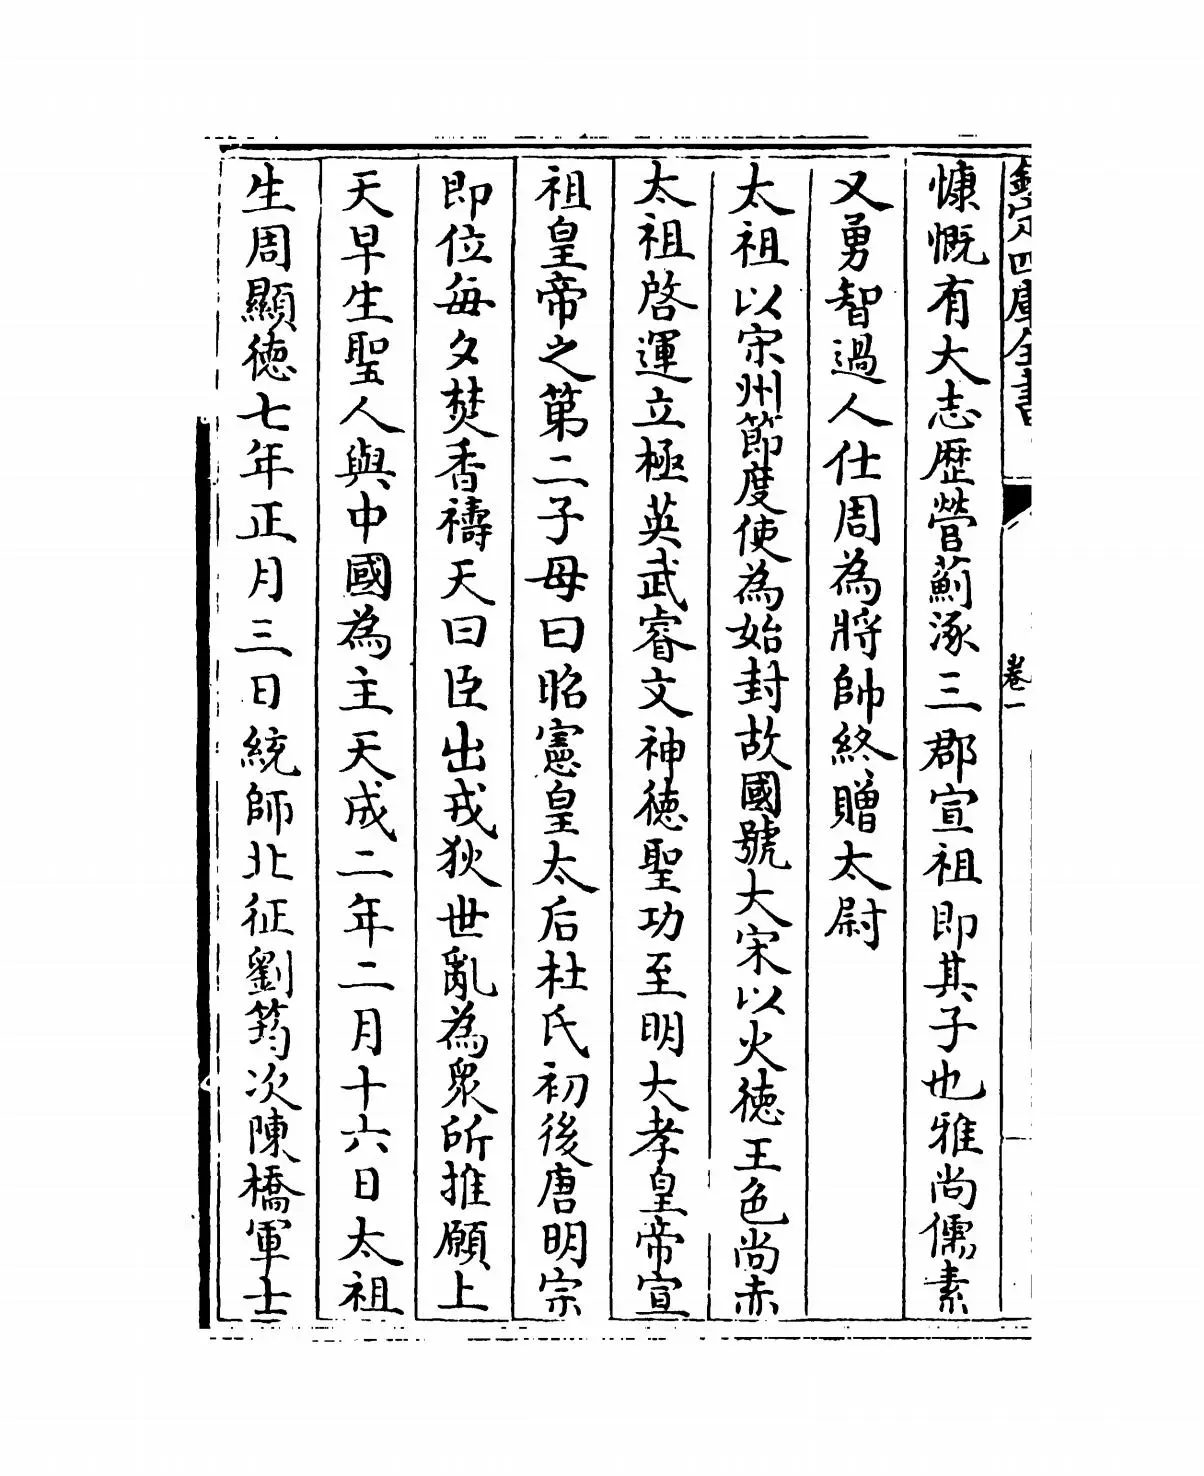 欽定四庫全書
卷一
慷慨有大志歷營薊涿三郡宣祖即其子也雅尚儒素
又勇智過人仕周為將帥終贈太尉
太祖以宋州節度使為始封故國號大宋以火徳王色尚赤
太祖啓運立極英武睿文神徳聖功至明大孝皇帝宣
祖皇帝之第二子母曰昭憲皇太后杜氏初後唐明宗
即位每夕焚香禱天曰臣出戎狄世亂為衆所推願上
天早生聖人與中國為主天成二年二月十六日太祖
生周顯徳七年正月三日統師北征劉筠次陳橋軍士